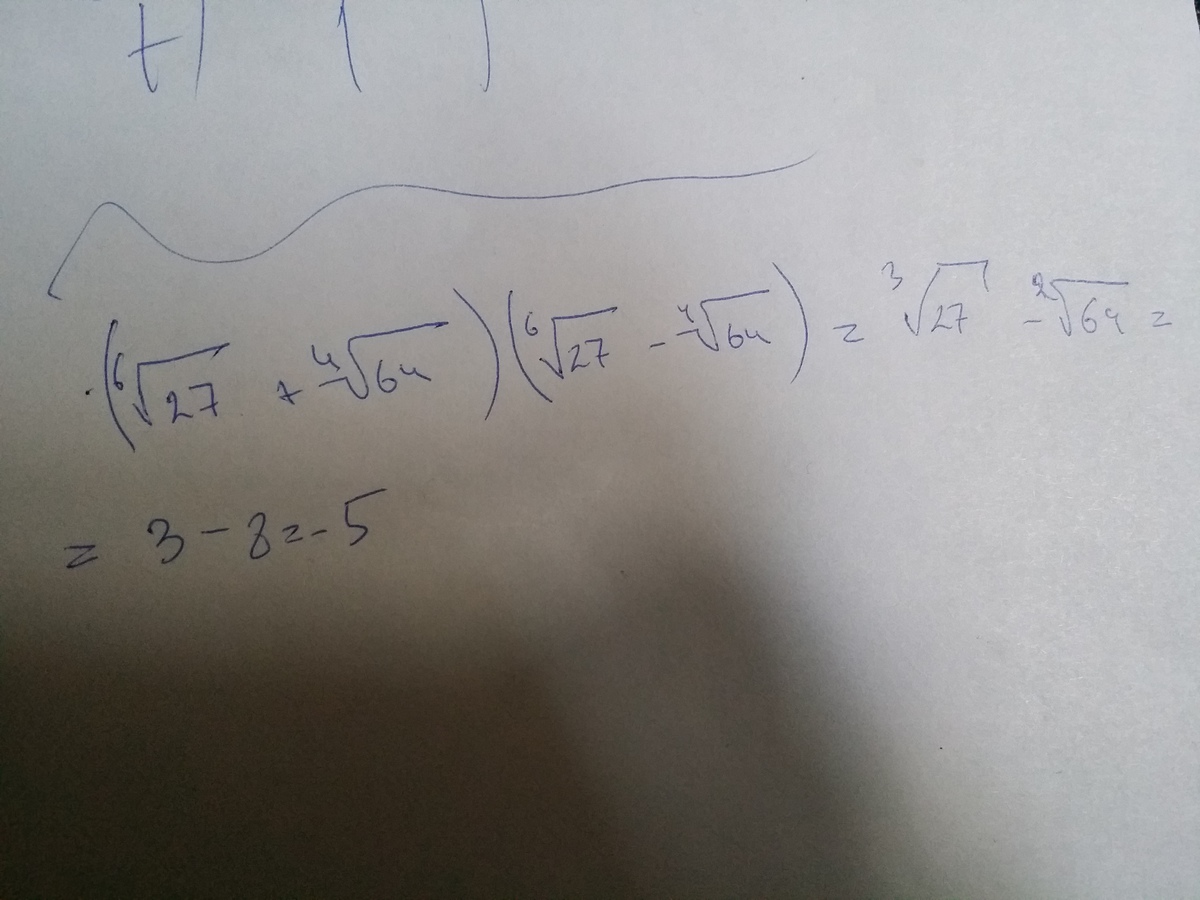 (⁶√27 + ⁴√64)(⁶√27 - ⁴√64) = ³√27 - ²√64 =
= 3 - 8 = - 5